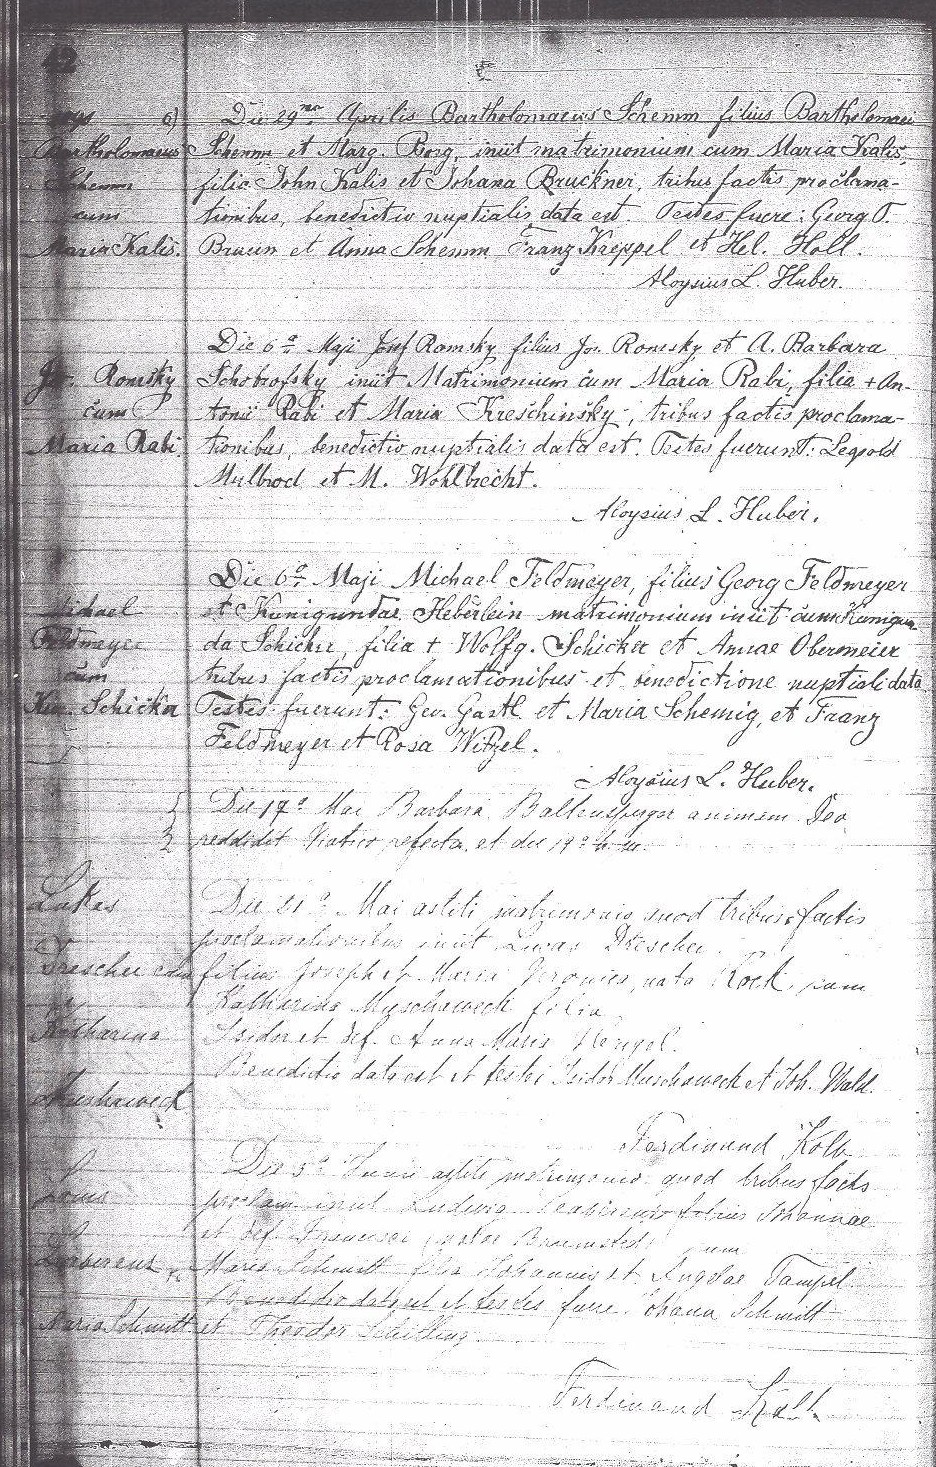 42
6) Die 29na Aprilis Bartholomaeus Schemm filius Bartholomaei
Bartholomaeus Schemm et Marg. Borg, iniit matrimonium cum Maria Kalis,
Schemm filia John Kalis et Johana Bruckner, tribus factis proclama-
cum tionibus, benedictio nuptialis data est. Testes fuere: Georg T.
Maria Kalis. Braun et Anna Schemm Franz Kreppel et Hel. Holl.
Aloysius L. Huber.
Die 6a Maji Josf Romsky filius Jos. Romsky et A. Barbara
Jos. Romsky Schobrofsky iniit Matrimonium cum Maria Rabi, filia + An-
cum tonii Rabi et Maria Kreschinsky, tribus factis proclama-
Maria Rabi tionibus, benedictio nuptialis data est. Testes fuerunt: Leopold
Mulbrod et M. Wohlbrecht.
Aloysius L. Huber.
Die 6a Maji Michael Feldmeyer, filius Georg Feldmeyer
Michael et Kunigundae Heberlein matrimonium iniit cum Kunigun
Feldmeyer da Schicker, filia + Wolfg. Schicker et Annae Obermeier
cum tribus factis proclamationibus et benedictione nuptiali data
Kun. Schicker Testes fuerunt: Geo. Gastl et Maria Schemig, et Franz
Feldmeyer et Rosa Witzel.
Aloysius L. Huber.
Die 17a Mai Barbara Baltensperger animam Deo
reddidit Viatico refecta et die 19a
Lukas Die 21a Mai astiti matrimonio quod tribus factis
proclamationibus iniit Lucas Drescher
Drescher cum filius Joseph et Maria Veronica, nata Rock, cum
Katharina Muschaweck filia
Katharina Isidor et def. Anna Maria Hengel.
Benedictio data est et testes Isidor Muschaweck et Joh. Wald.
Muschaweck
Ferdinand Kolb
Die 5a Junii astiti matrimonio quod tribus factis
Louis proclam. iniit Ludwig filius Johannae
et def. Francisci, natae cum
Maria Schmitt filia Johannis et Angelae Tampel
Benedictio data est et testes fuere Johana Schmitt
Maria Schmitt et Theodor Schilling.
Ferdinand Kolb.